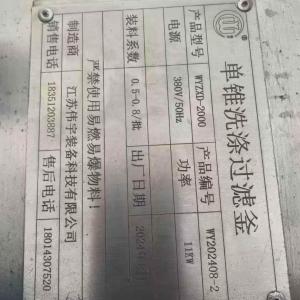 单锥洗涤过滤釜
产品型号 WYZXD-2000 产品编号 WY202408-2
电源 380V/50Hz 功率 11KW
装料系数 0.5-0.8/批 出厂日期
严禁使用易燃易爆物料!
制造商 江苏伟宇装备科技有限公司
销售电话 18351203887 售后电话 18014307520